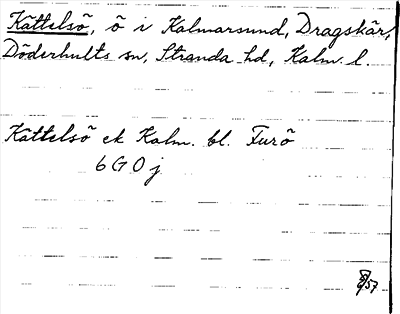 Kättelsö, ö i Kalmarsund, Dragskär,
Döderhults sn, Stranda hd, Kalm. l.
Kättelsö ek Kalm. bl. Furö
6 G 0 j